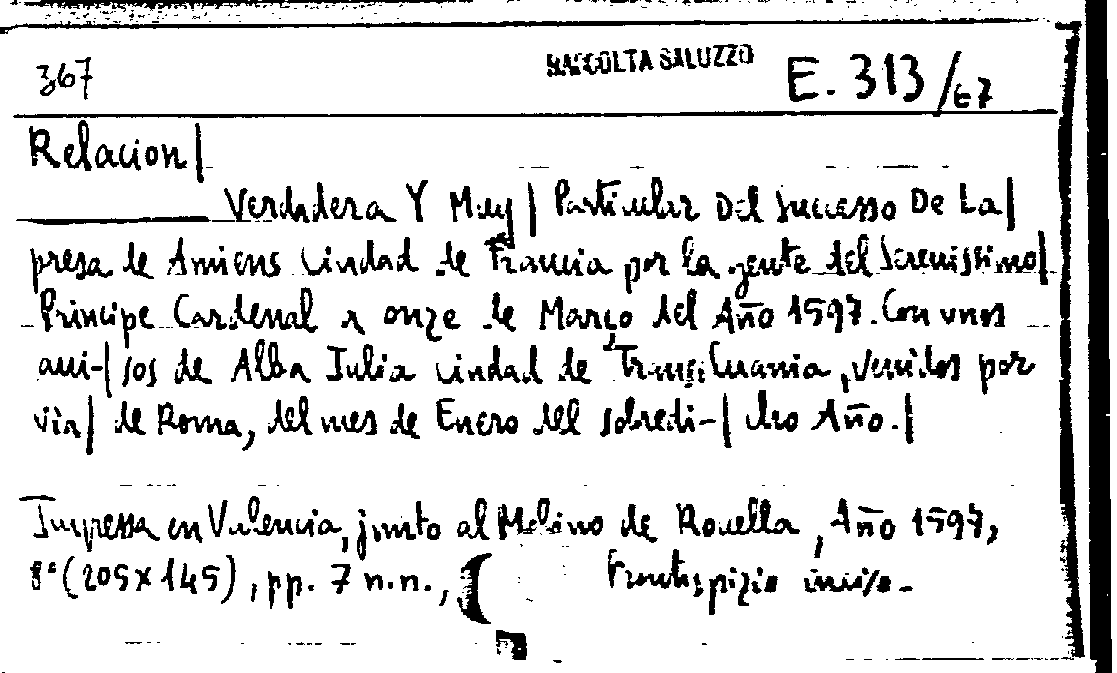 367 RACCOLTA SALUZZO E. 313/67
Relacion|
Verdadera Y Muy| Particular Del Sucesso De La|
presa de Amiens ciudad de Francia por la gente del Serenissimo|
Principe Cardenal a onze de Março del Año 1597. Con vnos
aui-| sos de Alba Julia ciudad de Transiluania, venidos por
via| de Roma, del mes de Enero del sobredi-| cho Año.|
Impressa en Valencia, junto al Molino de Rouella, Año 1597,
8° (205x145), pp. 7 n.n., Frontespizio inciso.